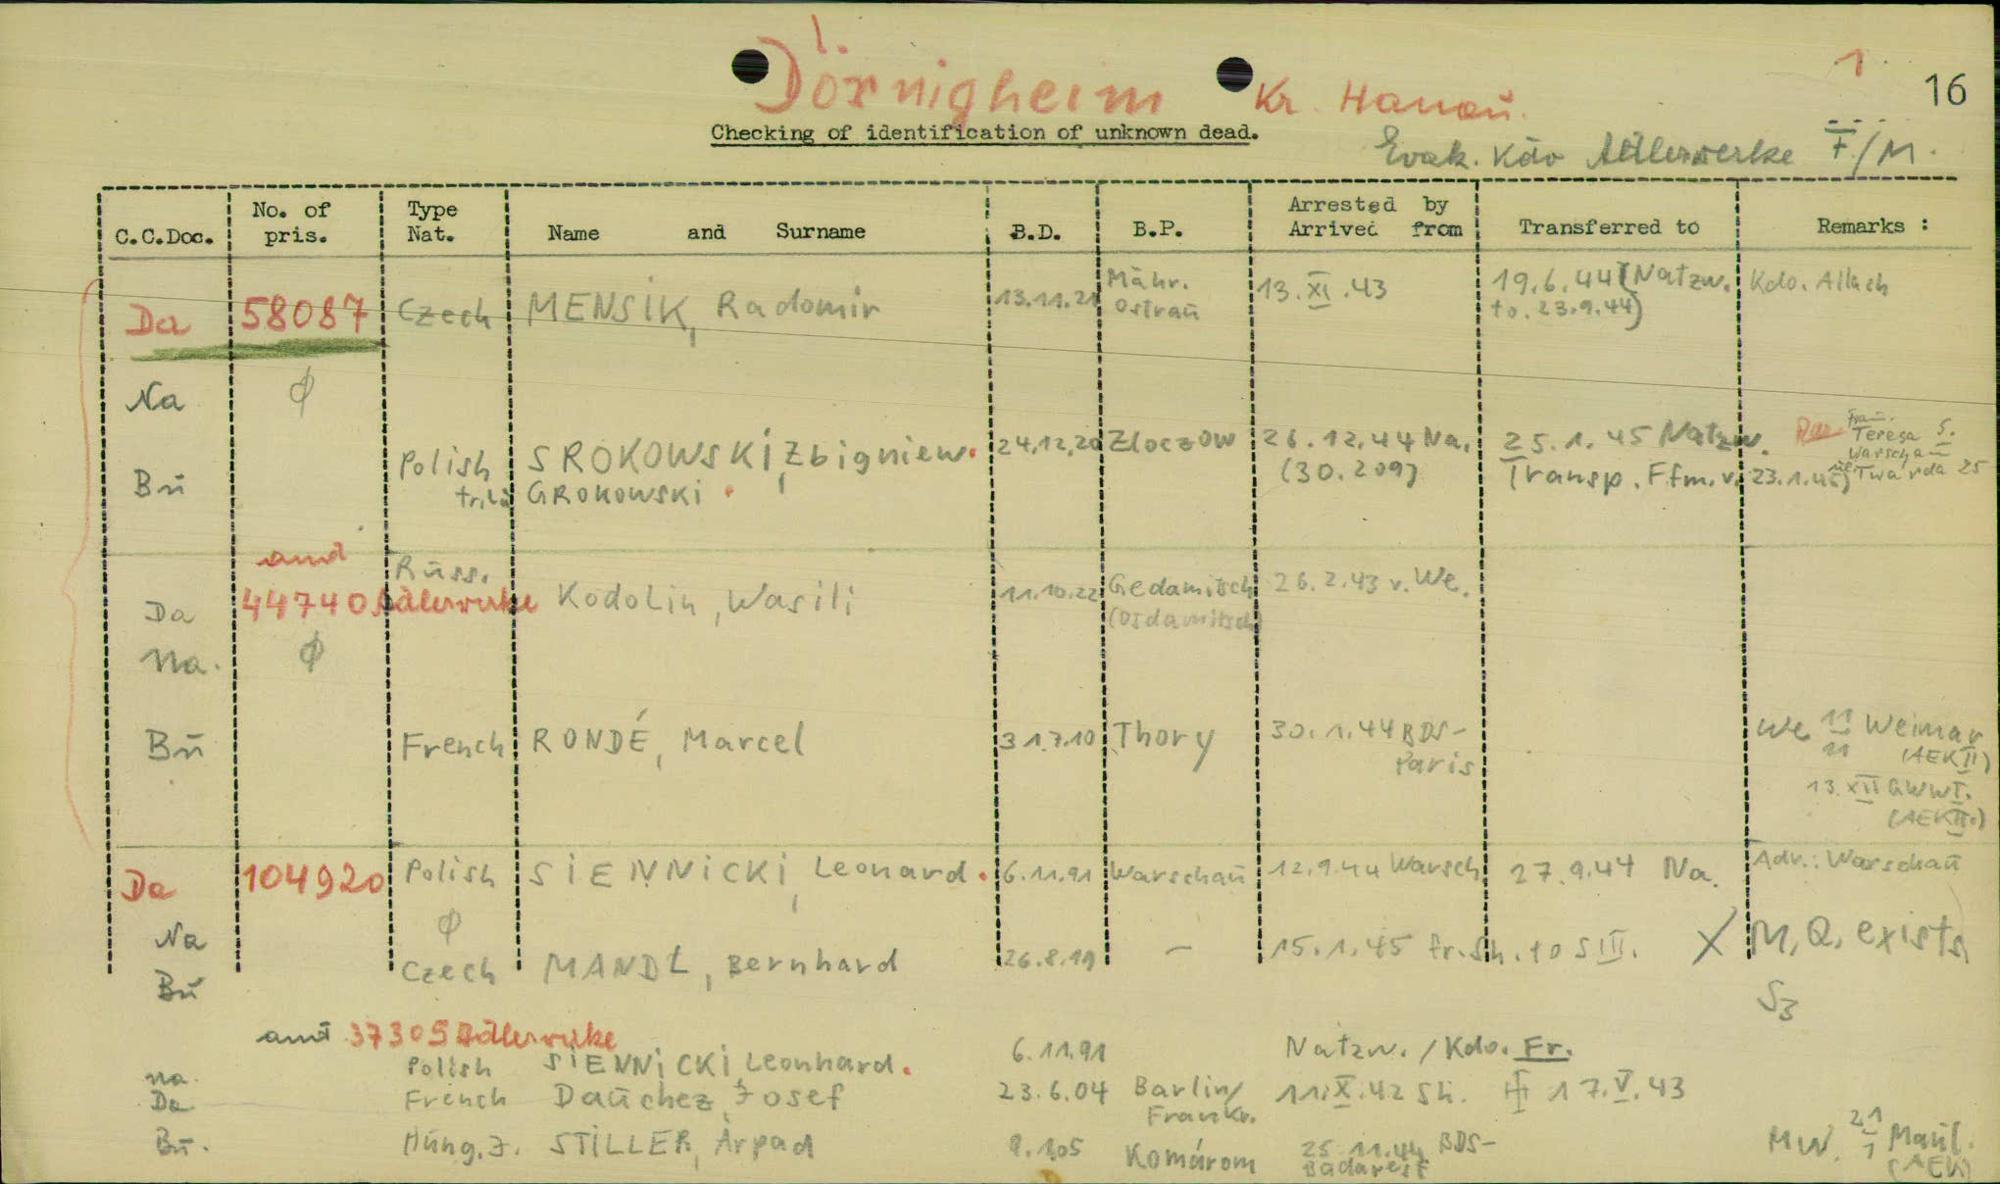 1.
1.
16
Dörnigheim Kr. Hanau.
Checking of identification of unknown dead.
Evak. Kdo Adlerwerke F/M.
C.C.Doc. No. of pris. Type Nat. Name and Surname B.D. B.P. Arrested by Arrived from Transferred to Remarks :
Da 58087 Czech MENSIK, Radomir 13.11.21 Mähr. Ostrau 13.XI.43 19.6.44 (Natzw. to. 23.9.44) Kdo. Allach
Na ∅
Bu Polish SROKOWSKI, Zbigniew. 24.12.20 Zloczow 26.12.44 Na. (30.209) 25.1.45 Natzw. Teresa S. Warschau
GROKOWSKI Transp. Ffm. v. 23.1.45) Twarda 25
and
Da 44740 Adlerwerke Russ. Kodolin, Wasili 11.10.22 Gedamitsch (Osdamitsch) 26.2.43 v. We.
Na. ∅
Bu French RONDÉ, Marcel 31.7.10 Thory 30.1.44 BDS- Paris We 11/11 Weimar (AEK II)
13.XII GWW I. (AEK II.)
Da 104920 Polish SIENNICKI, Leonard. 6.11.91 Warschau 12.9.44 Warsch. 27.9.44 Na. Adr.: Warschau
Na ∅
Bu Czech MANDL, Bernhard 26.8.19 – 15.1.45 fr. Sh. to S III. X M.Q. exists
S3
and 37305 Adlerwerke
na. Polish SIENNICKI, Leonhard. 6.11.91 Natzw. / Kdo. Fr.
Da French Dauchez, Josef 23.6.04 Barlin/ Frankr. 11.X.42 Sh. 17.V.43
Bu. Hung.J. STILLER, Arpad 9.1.05 Komárom 25.11.44 BDS- Budapest MW. 21/1 Maul. (AEK)